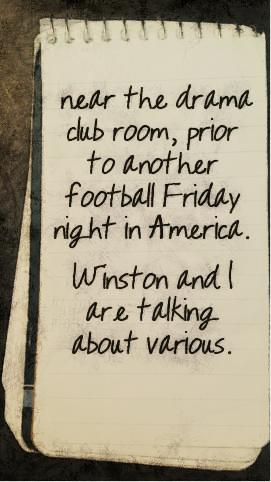 near the drama
club room, prior
to another
football Friday
night in America.
Winston and I
are talking
about various.